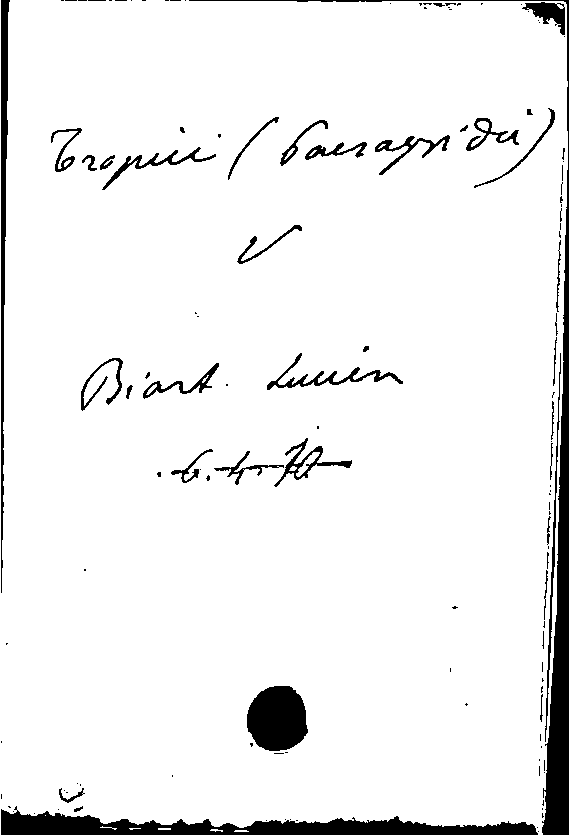 Tropici (
v
Biart. Lucien
.6.4.70